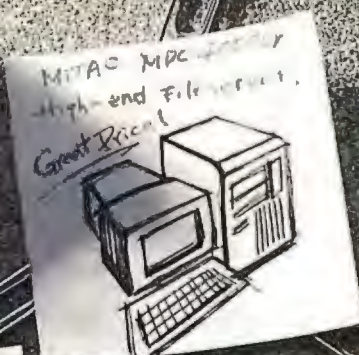 MiTAC MPC
High-end File
Great Price!